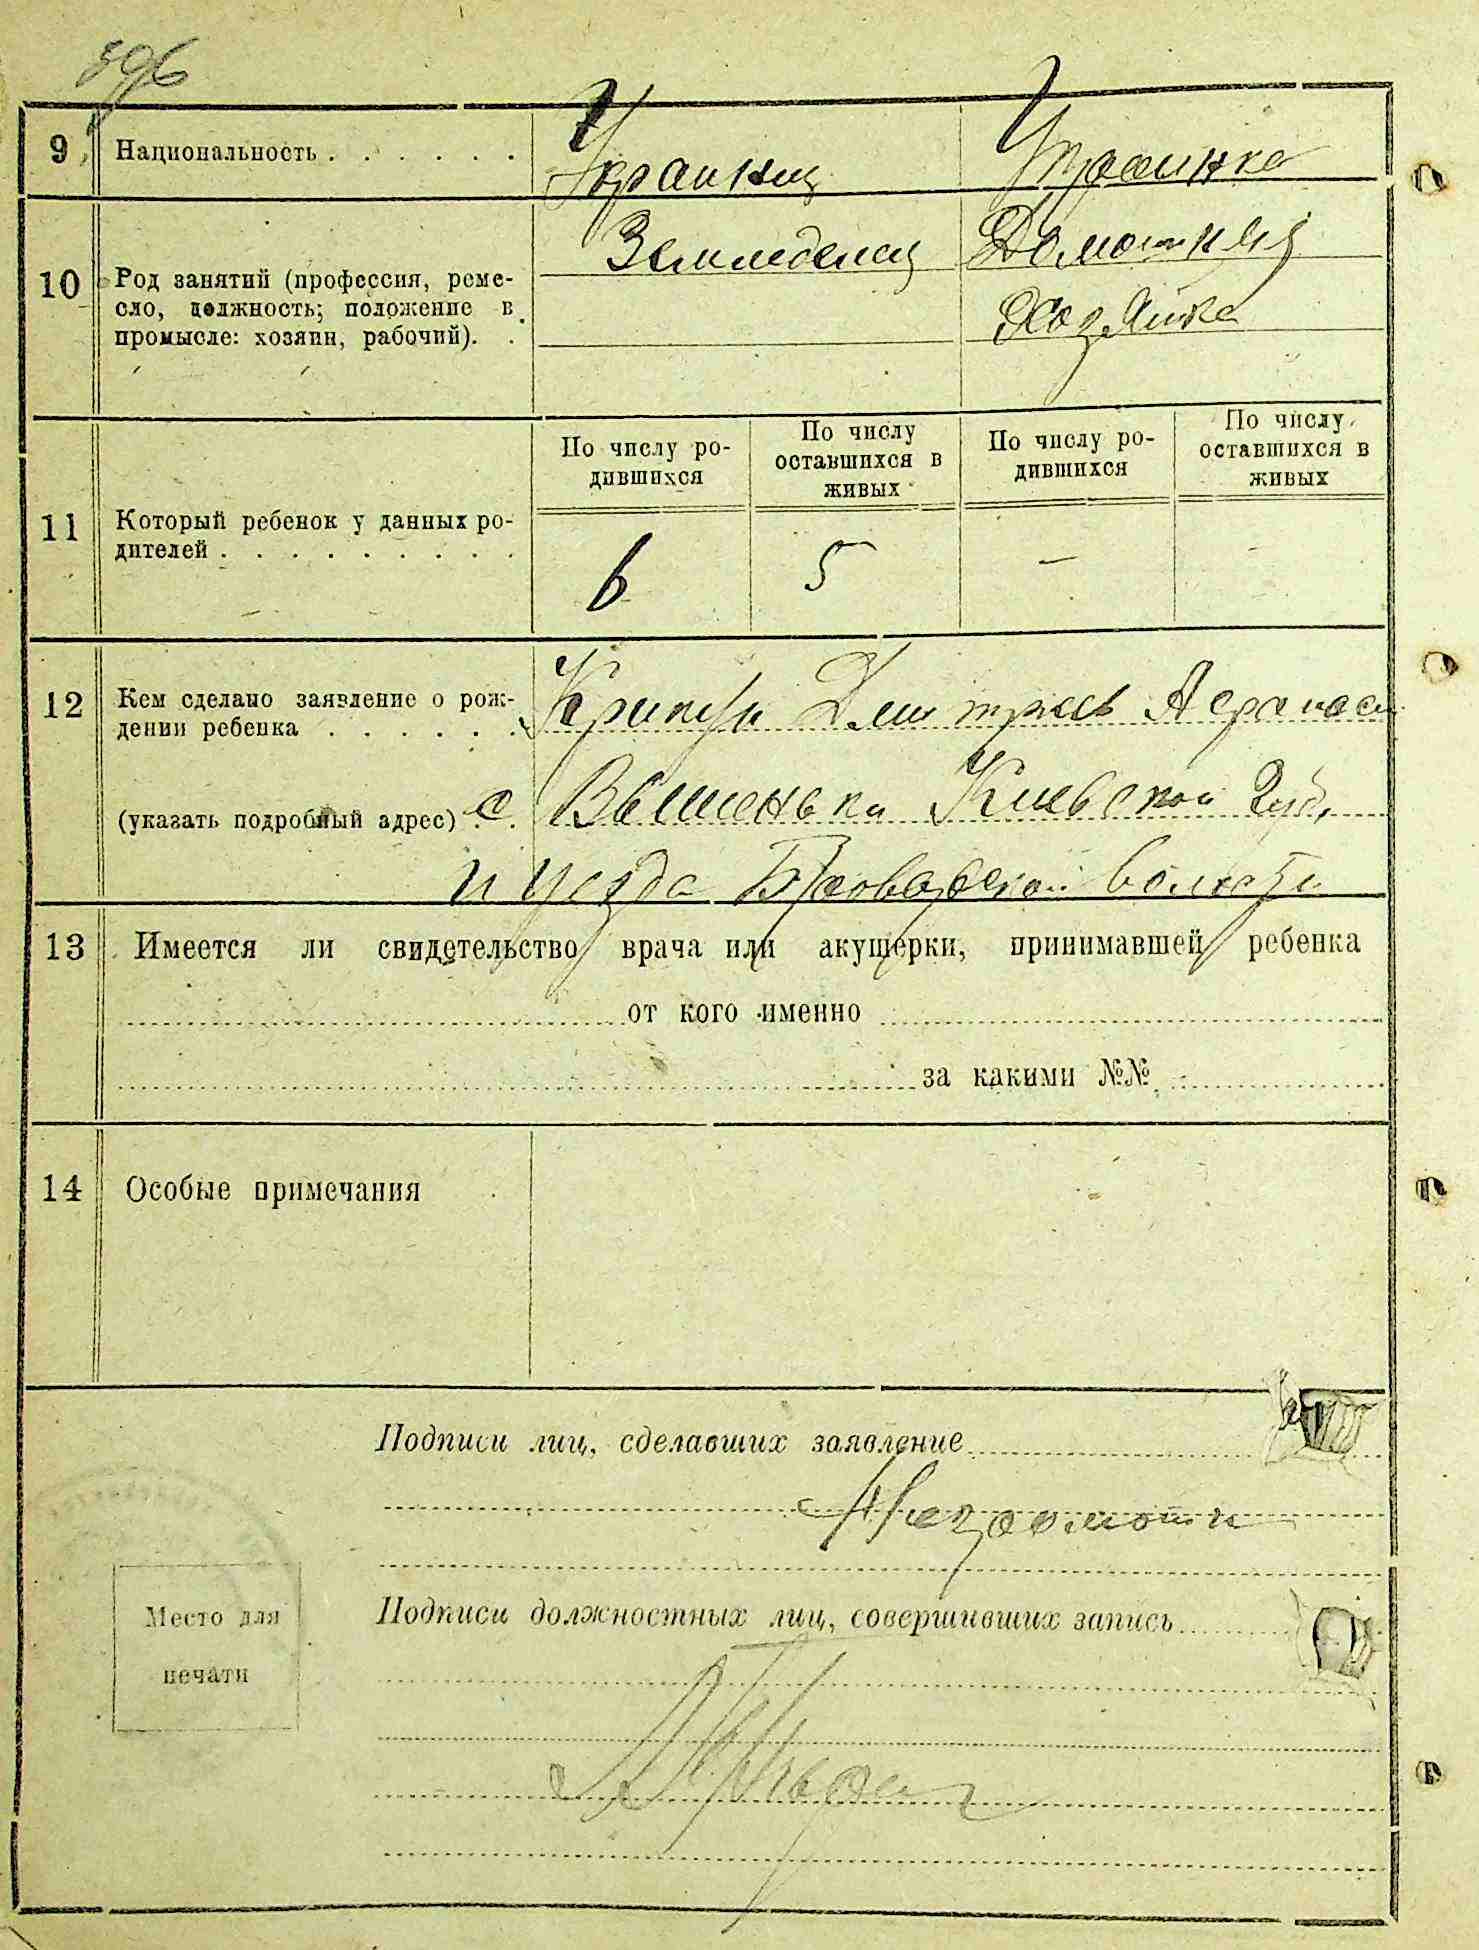 596
9 Национальность . . . . . . Украинец Украинка
10 Род занятий (профессия, реме-
сло, должность; положение в
промысле: хозяин, рабочий). .
Земледелец Домашняя
Хозяйка
11 Который ребенок у данных ро-
дителей . . . . . . . . .
По числу ро-
дившихся
По числу
оставшихся в
живых
По числу ро-
дившихся
По числу
оставшихся в
живых
6 5 — -
12 Кем сделано заявление о рож-
дении ребенка . . . . . .
Дмитрий
(указать подробный адрес) . . с. Вышеньки Киевской Губ.
и уезда Броварской волости
13 Имеется ли свидетельство врача или акушерки, принимавшей ребенка
от кого именно
за какими №№
14 Особые примечания
Подписи лиц, сделавших заявление
Неграмотн
Подписи должностных лиц, совершивших запись
Место для
печати